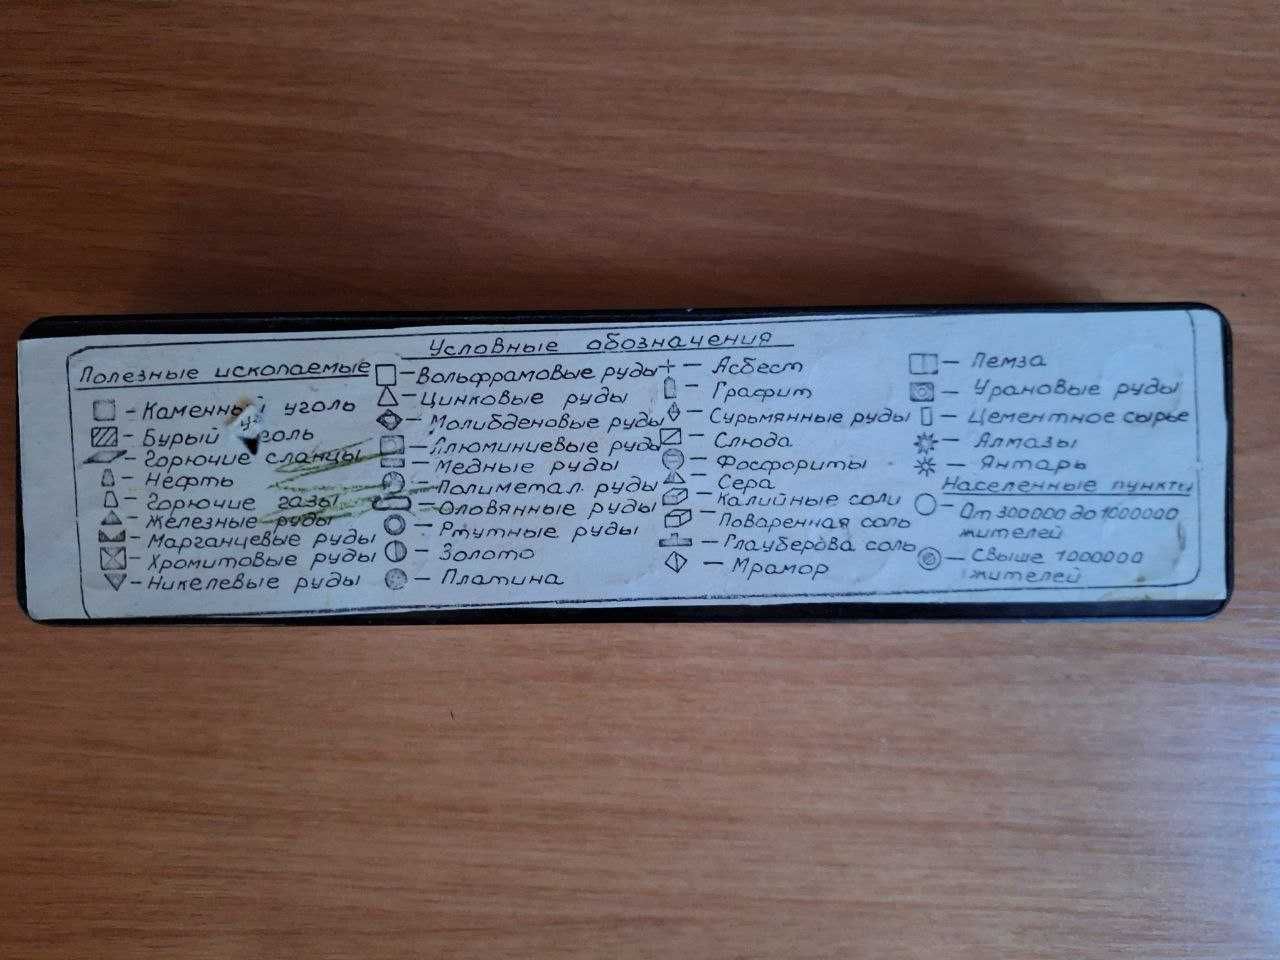 Условные обозначения
Полезные ископаемые
– Каменный уголь
– Бурый уголь
– Горючие сланцы
– Нефть
– Горючие газы
– Железные руды
– Марганцевые руды
– Хромитовые руды
– Никелевые руды
– Вольфрамовые руды
– Цинковые руды
– Молибденовые руды
– Алюминиевые руды
– Медные руды
– Полиметал. руды
– Оловянные руды
– Ртутные руды
– Золото
– Платина
– Асбест
– Графит
– Сурьмянные руды
– Слюда
– Фосфориты
– Сера
– Калийные соли
– Поваренная соль
– Глауберова соль
– Мрамор
– Пемза
– Урановые руды
– Цементное сырье
– Алмазы
– Янтарь
Населенные пункты
– От 300000 до 1000000
жителей
– Свыше 1000000
жителей